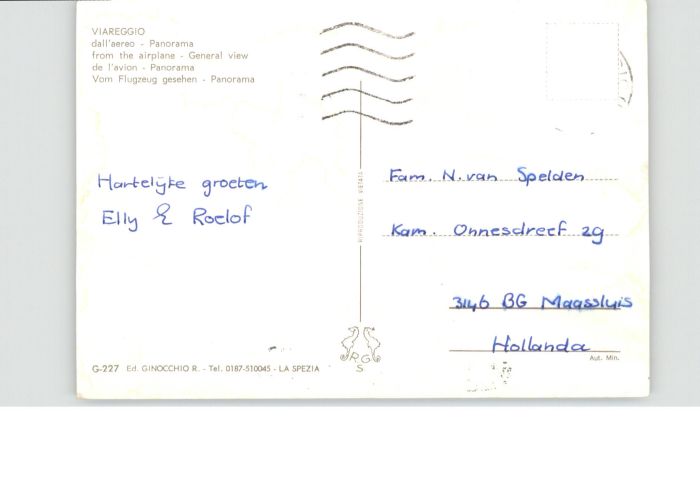 VIAREGGIO
dall'aereo - Panorama
from the airplane - General view
de l'avion - Panorama
Vom Flugzeug gesehen - Panorama
Hartelijke groeten
Elly & Roelof
RIPRODUZIONE VIETATA
Fam. N. van Spelden
Kam. Onnesdreef 29
3146 BG Maassluis
Hollanda
Aut. Min.
RG
S
G-227 Ed. GINOCCHIO R. - Tel. 0187-510045 - LA SPEZIA